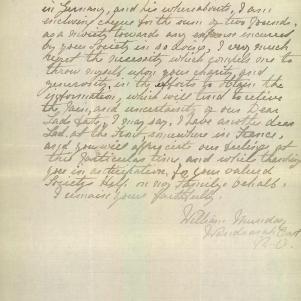 in Germany, and his whereabouts, I am
enclosing cheque for the sum of two Pounds,
as a moiety towards any expense incurred
by your Society in so doing, I very much
regret the necessity which compels me to
throw myself upon your charity, and
generosity, in the efforts to obtain the
information, which will tend to relieve
the pain, and uncertainty of our Dear
Lads fate, I may say, I have another dear
Lad, at the Front, somewhere in France,
and you will appreciate our feelings at
this Particular time, and while thanking
you in anticipation, for your valued
Societys Help on my Family's behalf.
I remain yours faithfully.
William Munday
East
P.O.